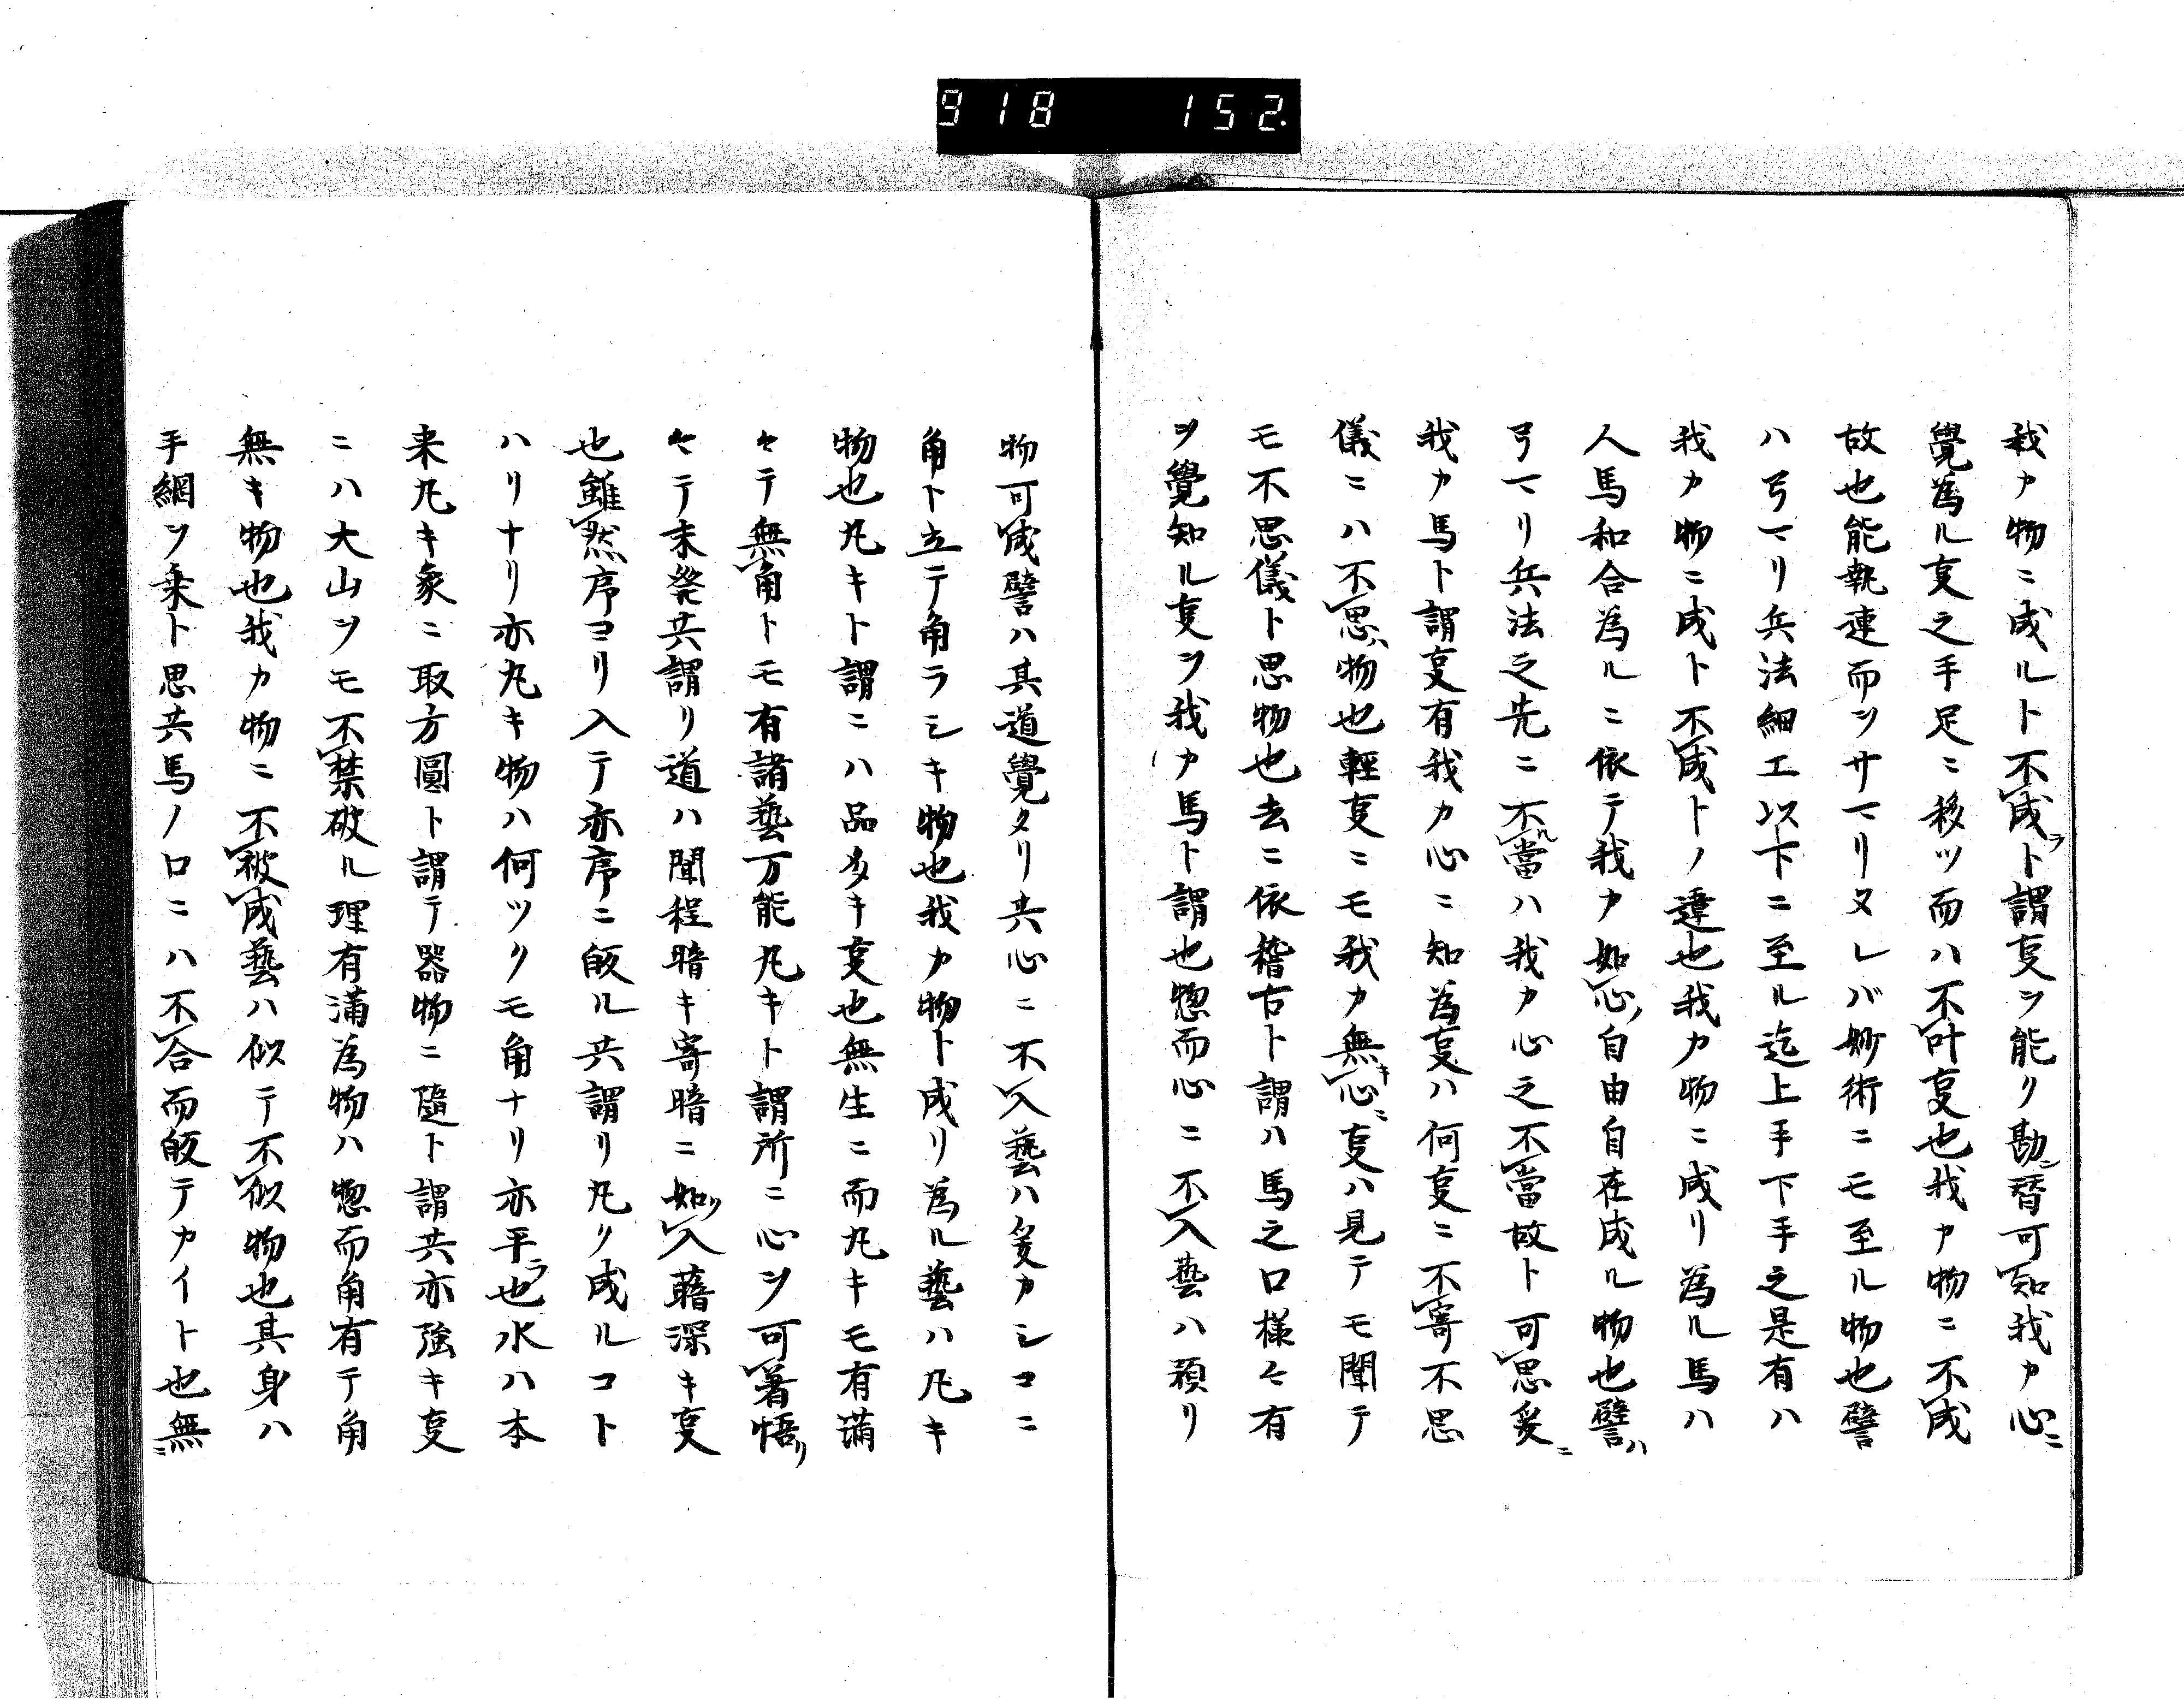 918 152.
我カ物ニ成ルト不成ラト謂叓ヲ能ク勘替可知我カ心ニ
覺為ル叓之手足ニ移ツ而ハ不叶叓也我カ物ニ不成
故也能執連而ヲサマリヌレバ妙術ニモ至ル物也譬
ハ弓マリ兵法細工以下ニ至ル迄上手下手之是有ハ
我カ物ニ成ト不成トノ違也我カ物ニ成リ為ル馬ハ
人馬和合為ルニ依テ我カ如心ノ自由自在成ル物也譬ハ
弓マリ兵法之先ニ不ル當ハ我カ心之不當故ト可思爰ニ
我カ馬ト謂叓有我カ心ニ知為叓ハ何叓ニ不寄不思
儀ニハ不思ハ物也輕叓ニモ我カ無キ心ニ叓ハ見テモ聞テ
モ不思儀ト思物也去ニ依稽古ト謂ハ馬之口様々有
ヲ覺知ル叓ヲ我カ馬ト謂也惣而心ニ不入藝ハ預リ
物可成譬ハ其道覺タリ共心ニ不入藝ハ爰カシコニ
角ト立テ角ラシキ物也我カ物ト成リ為ル藝ハ丸キ
物也丸キト謂ニハ品多キ叓也無生ニ而丸キモ有満
々テ無角トモ有諸藝万能丸キト謂所ニ心ヲ可着悟リ
々テ未發共謂リ道ハ聞程暗キ寄暗ニ如入藉深キ叓
也雖然序ヨリ入テ亦序ニ皈ル共謂リ丸ク成ルコト
ハリナリ亦丸キ物ハ何ツクモ角ナリ亦平ラ也水ハ本
来丸キ象ニ取方圓ト謂テ器物ニ隨ト謂共亦強キ叓
ニハ大山ヲモ不禁破ル理有満為物ハ惣而角有テ角
無キ物也我カ物ニ不被成藝ハ似テ不似物也其身ハ
手綱ヲ乗ト思共馬ノ口ニハ不合而皈テカイト也無ニ